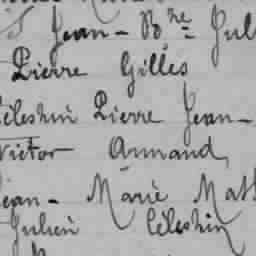 Jean-Bte Jul
Pierre Gilles
Célestin Pierre Jean-
Victor Armand,
Jean- Marie Math
Julien Célestin